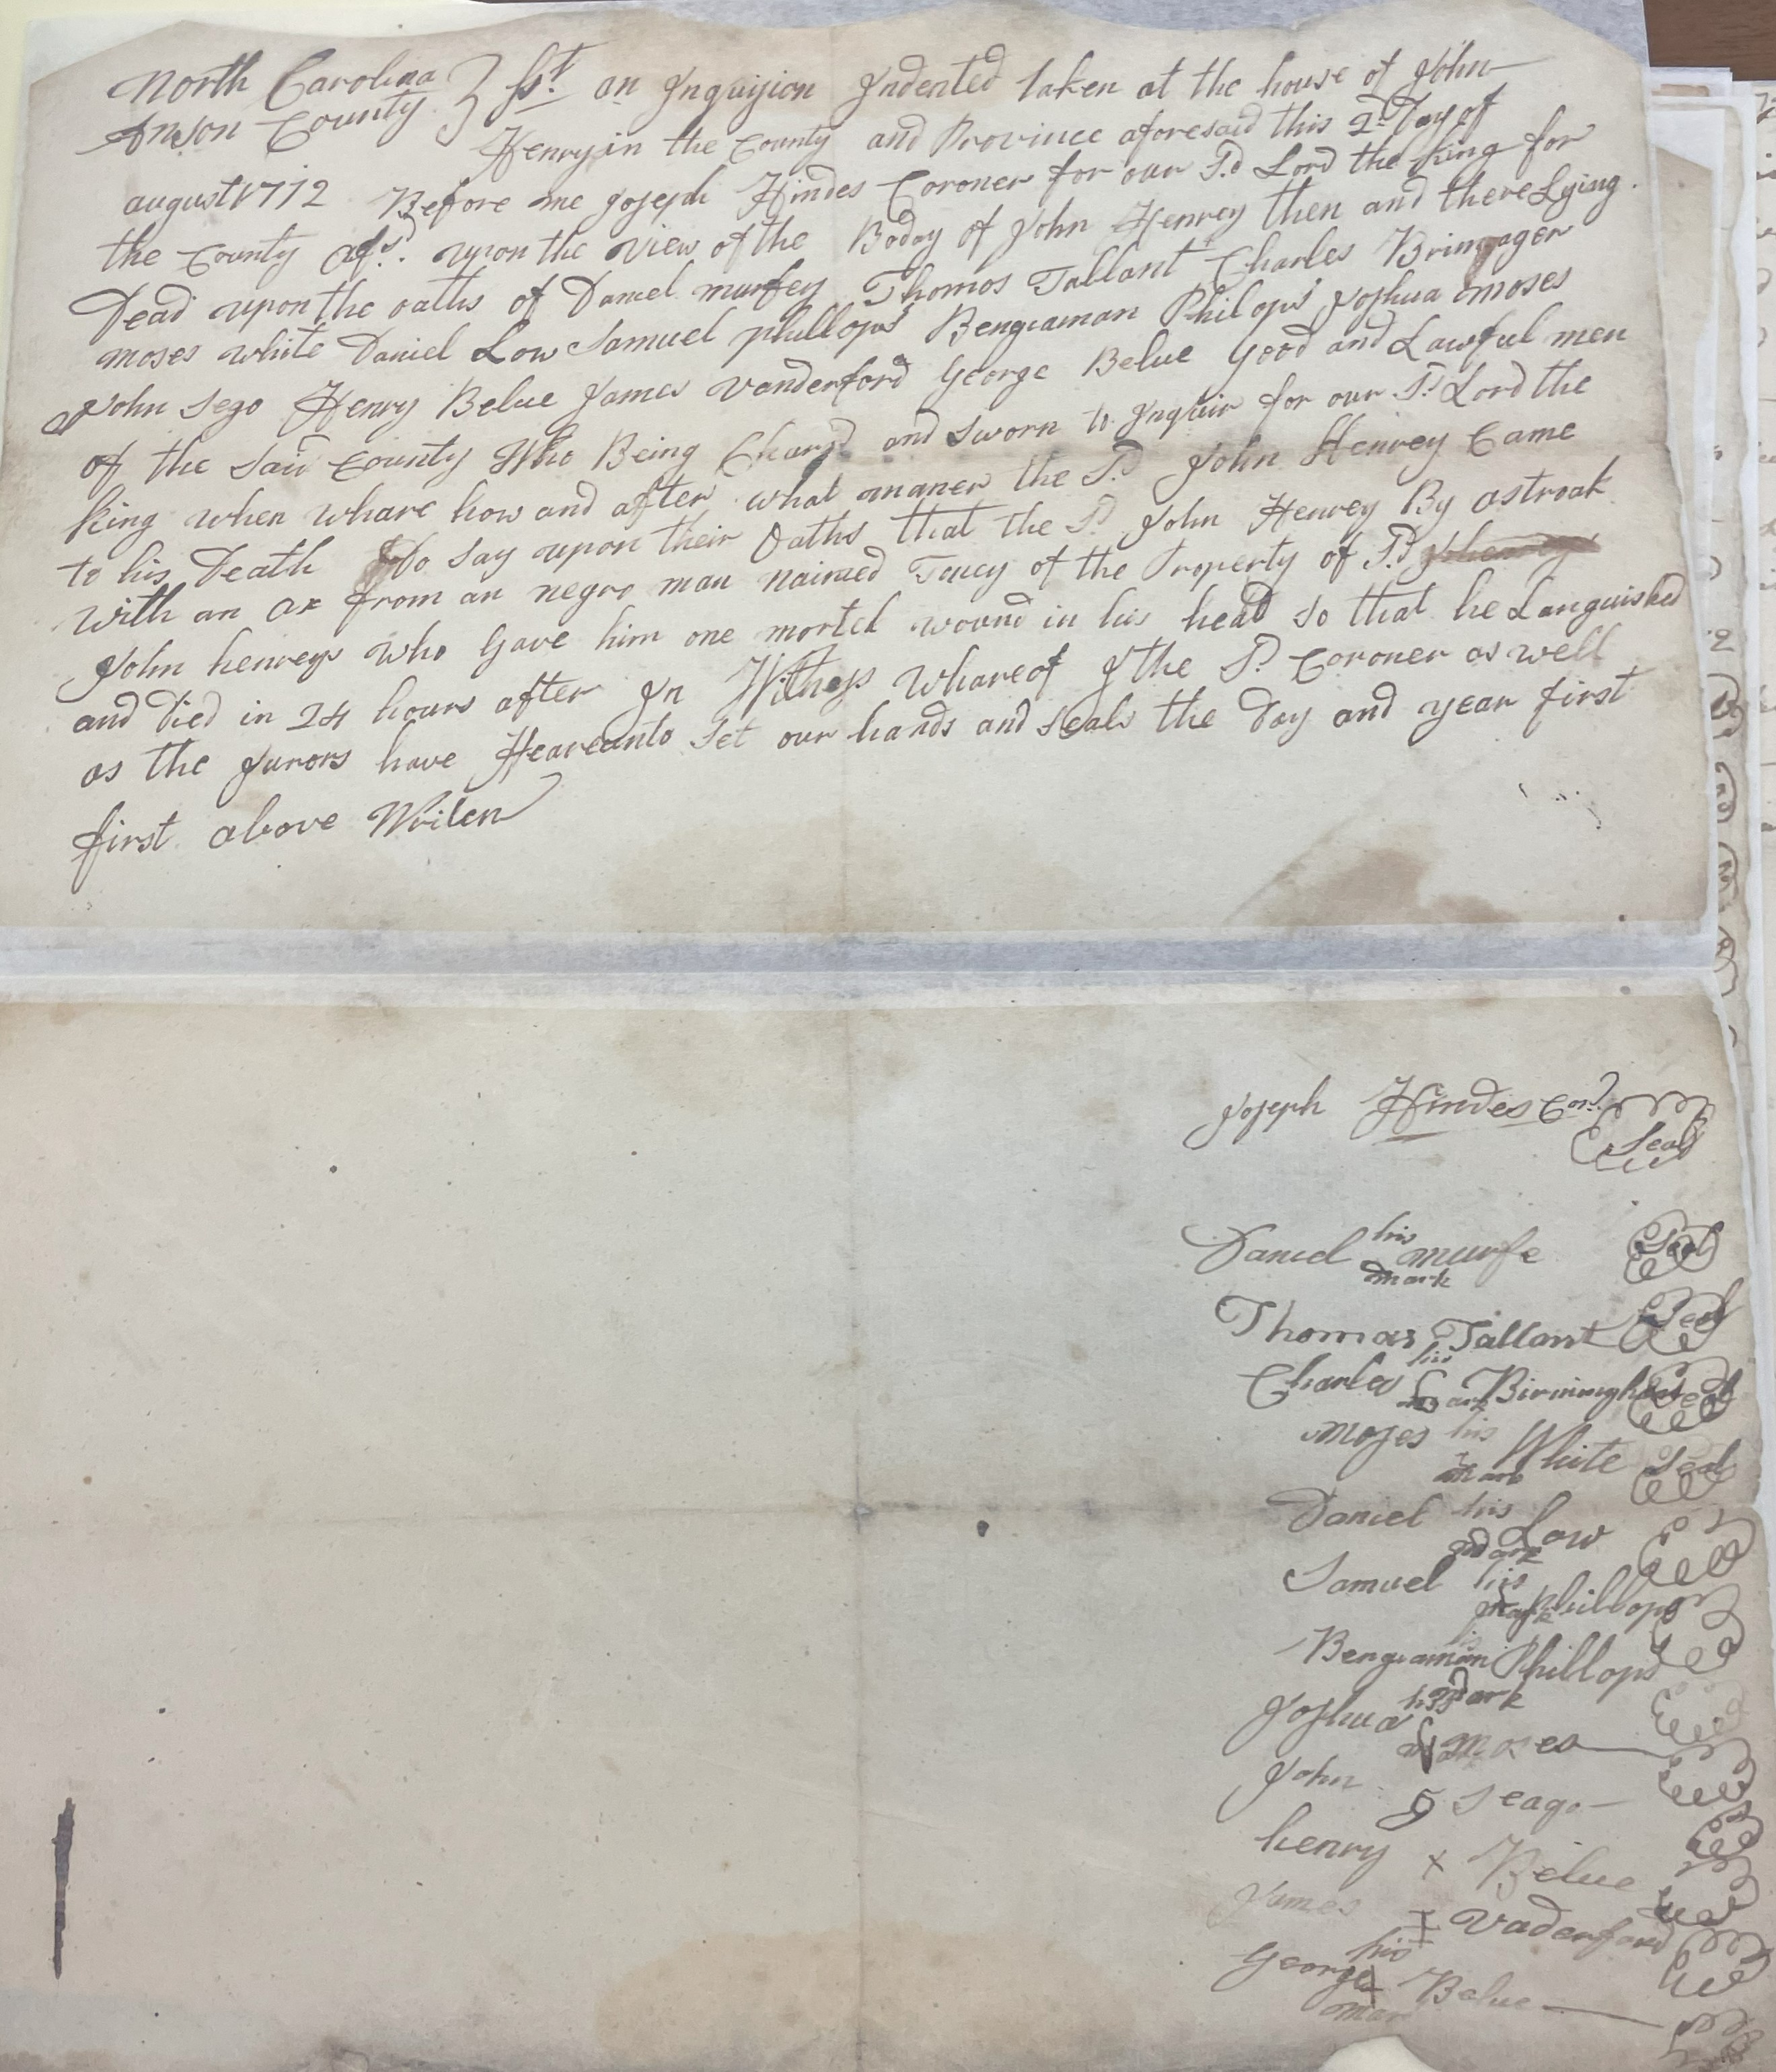 North Carolina } Sst. an Inquision Indented taken at the house of John
Anson County
Henrey in the County and Province aforesaid this 2d Day of
august 1772 Before me Joseph Hindes Coroner for our Sd Lord the King for
the County afsd. upon the view of the Boday of John Henrey then and there Lying
Dead upon the oaths of Daniel murfey Thomos Tallant Charles Brimager
moses white Daniel Low Samuel phillops Bengiaman Philops Joshua moses
John Sego Henry Belue James Vanderford George Belue Good and Lawful men
of the Said County Who Being Chargd and Sworn to Inquir for our Sd Lord the
King when whare how and after what maner the Sd John Henrey Came
to his Death Do Say upon their Oaths that the Sd John Henrey By a stroak
with an ax from an negro man naimed of the Property of Sd
John henreys who Gave him one mortel wound in his head So that he Languished
and Died in 24 hours after In Witness whareof I the Sd Coroner as well
as the Jurors have Heareunto Set our hands and Seals the Day and year first
first above Writen
Joseph Hindes Cor. Seal
Daniel his mark murfe Seal
Thomas Tallant Seal
Charles his mark Birmingham Seal
Moses his mark White Seal
Daniel his mark Low
Samuel his mark Phillops
Bengiamin his mark Phillops
Joshua his mark Moses
John Seago
henry x Belue
James Vaderford
George his x mark Belue